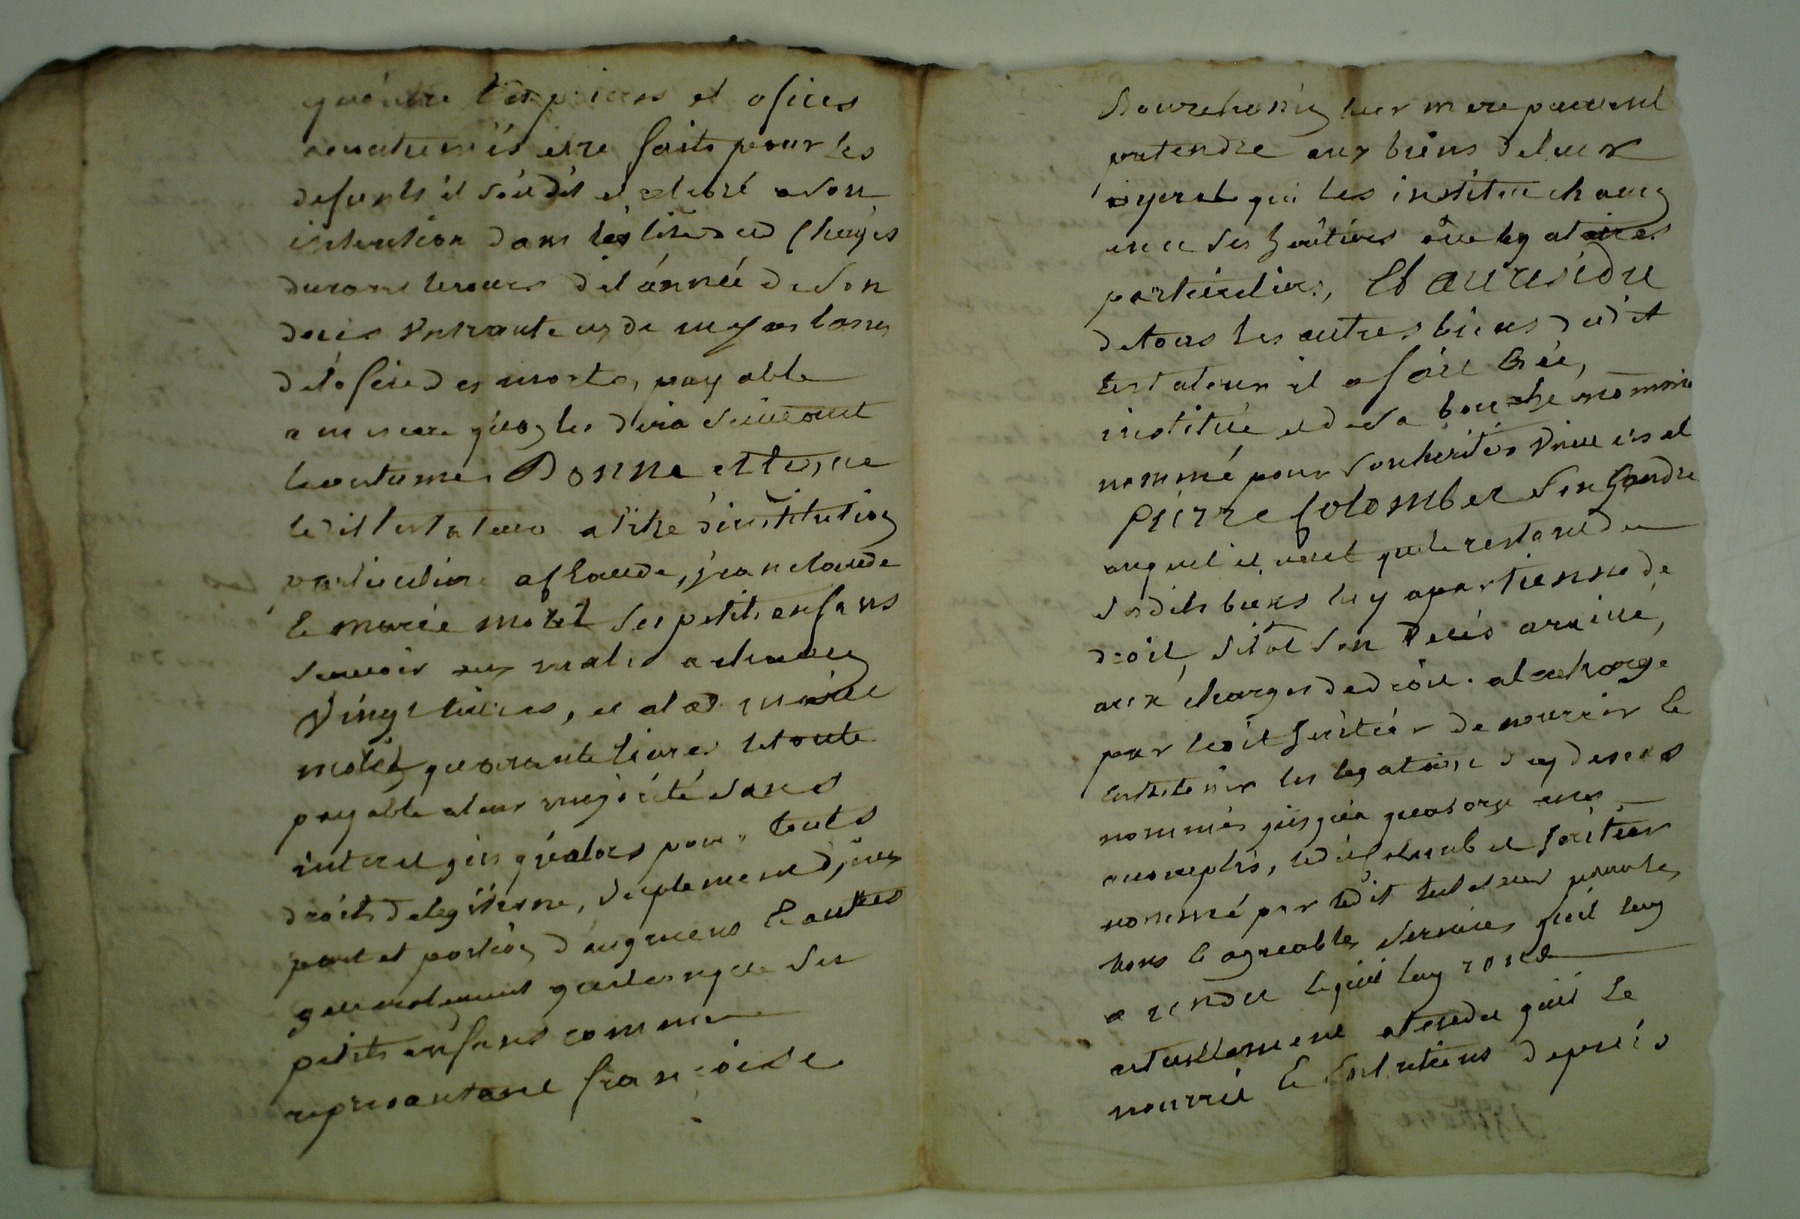 qu'outre les prieres et ofices
acoutumés etre faits pour les
defunts il soit dit et celebré a son
intention dans les lise dud Cheyès
durant le cours de l'année de son
deces trente de messes basses
de l'ofice des morts, payable
a qui les dira suivant
la coutume Donne et legue
ledit testateur a titre d'institution
particuliere a Claude, jean claude
& marie motet ses petits enfans
scavoir aux males a chacun
Vingt livres, et a lad marie
motet quarante livres le toute
payable a leur majorité sans
interet jusqu'alors pour touts
droits de legitime, suplement d'jcelle
part et portion d'augment & autres
generalement quelconques ses
petits enfans comme
representant françoise
leur mere peuvent
pretendre aux biens deleur
ayeul qui les institue chacun
en ce ses heritiers ou legataires
particuliers, Et au residu
de tous les autres biens dudit
testateur il a fait Créé,
institué et de sa bouche nommé
nommé pour son heritier universel
Pierre Colombet son Gendre
auquel il veut que le restant de
sesdits biens luy apartienne de
droit, sitot son Decés arrivé,
aux charges de droit. a la charge
par ledit heritier de nourrir &
entretenir les legataires sus
nommés jusqu'a quatorze ans
accomplis, ledit Colombet heritier
nommé par ledit testateur pour les
bons & agreables services qu'il luy
a rendu & qu'il luy rend
actuellement atendu qu'il le
nourrit & entretiens depuis